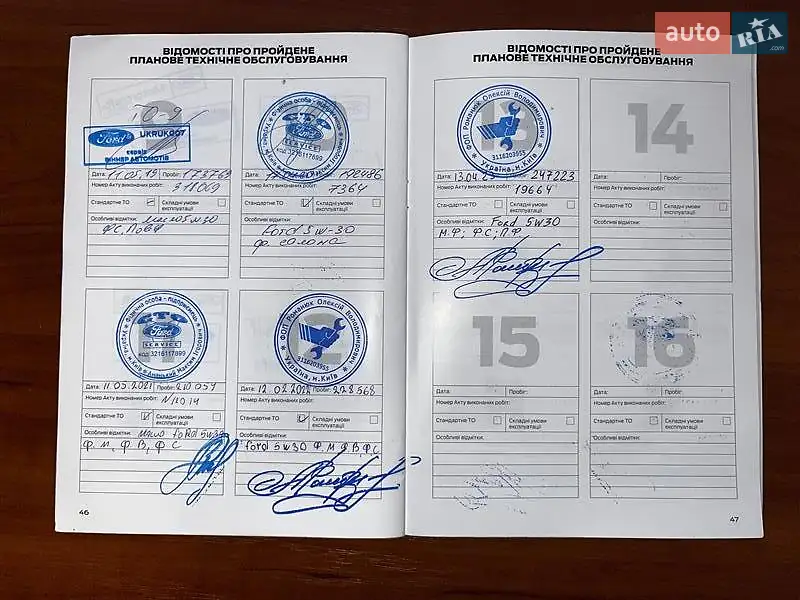 auto RIA .com
ВІДОМОСТІ ПРО ПРОЙДЕНЕ
ПЛАНОВЕ ТЕХНІЧНЕ ОБСЛУГОВУВАННЯ
10-9
Ford UKRUK007
сервіс
ВІННЕР АВТОМОТІВ
Дата: 11.05.19 Пробіг: 173769
Номер Акту виконаних робіт:
318069
Стандартне ТО
Складні умови експлуатації
Особливі відмітки: масло 5w30
Фізична особа - підприємець
СТО
Ford
SERVICE
код 3216117899
192486
Номер Акту виконаних робіт:
7364
Стандартне ТО
Складні умови експлуатації
Особливі відмітки:
Ford 5w-30
ф. салона
Фізична особа - підприємець
СТО
Ford
SERVICE
код 3216117899
Дата: 11.05.2021 Пробіг: 210057
Номер Акту виконаних робіт:
N12014
Стандартне ТО V
Складні умови експлуатації
Особливі відмітки: масло Ford 5w30
Ф. М, Ф В, Ф С
ФОП Романюк Олексій Володимирович
3116203955
Україна, м.Київ
Дата: 12.02.2022 Пробіг: 228568
Номер Акту виконаних робіт:
Стандартне ТО V
Складні умови експлуатації
Особливі відмітки:
Ford 5w30 Ф.М.Ф В,Ф.С
46
ВІДОМОСТІ ПРО ПРОЙДЕНЕ
ПЛАНОВЕ ТЕХНІЧНЕ ОБСЛУГОВУВАННЯ
13
ФОП Романюк Олексій Володимирович
3116203955
Україна, м.Київ
Дата: 13.04.23 Пробіг: 247223
Номер Акту виконаних робіт:
19664
Стандартне ТО
Складні умови експлуатації
Особливі відмітки: Ford 5w30
М.Ф; Ф.С; П.Ф
14
Дата: Пробіг:
Номер Акту виконаних робіт:
Стандартне ТО
Складні умови експлуатації
Особливі відмітки:
15
Дата: Пробіг:
Номер Акту виконаних робіт:
Стандартне ТО
Складні умови експлуатації
Особливі відмітки:
16
Дата: Пробіг:
Номер Акту виконаних робіт:
Стандартне ТО
Складні умови експлуатації
Особливі відмітки:
47